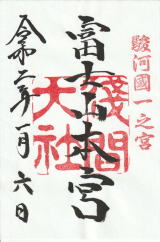 駿河國一之宮
富士山本宮
淺間
大社
令和二年一月六日